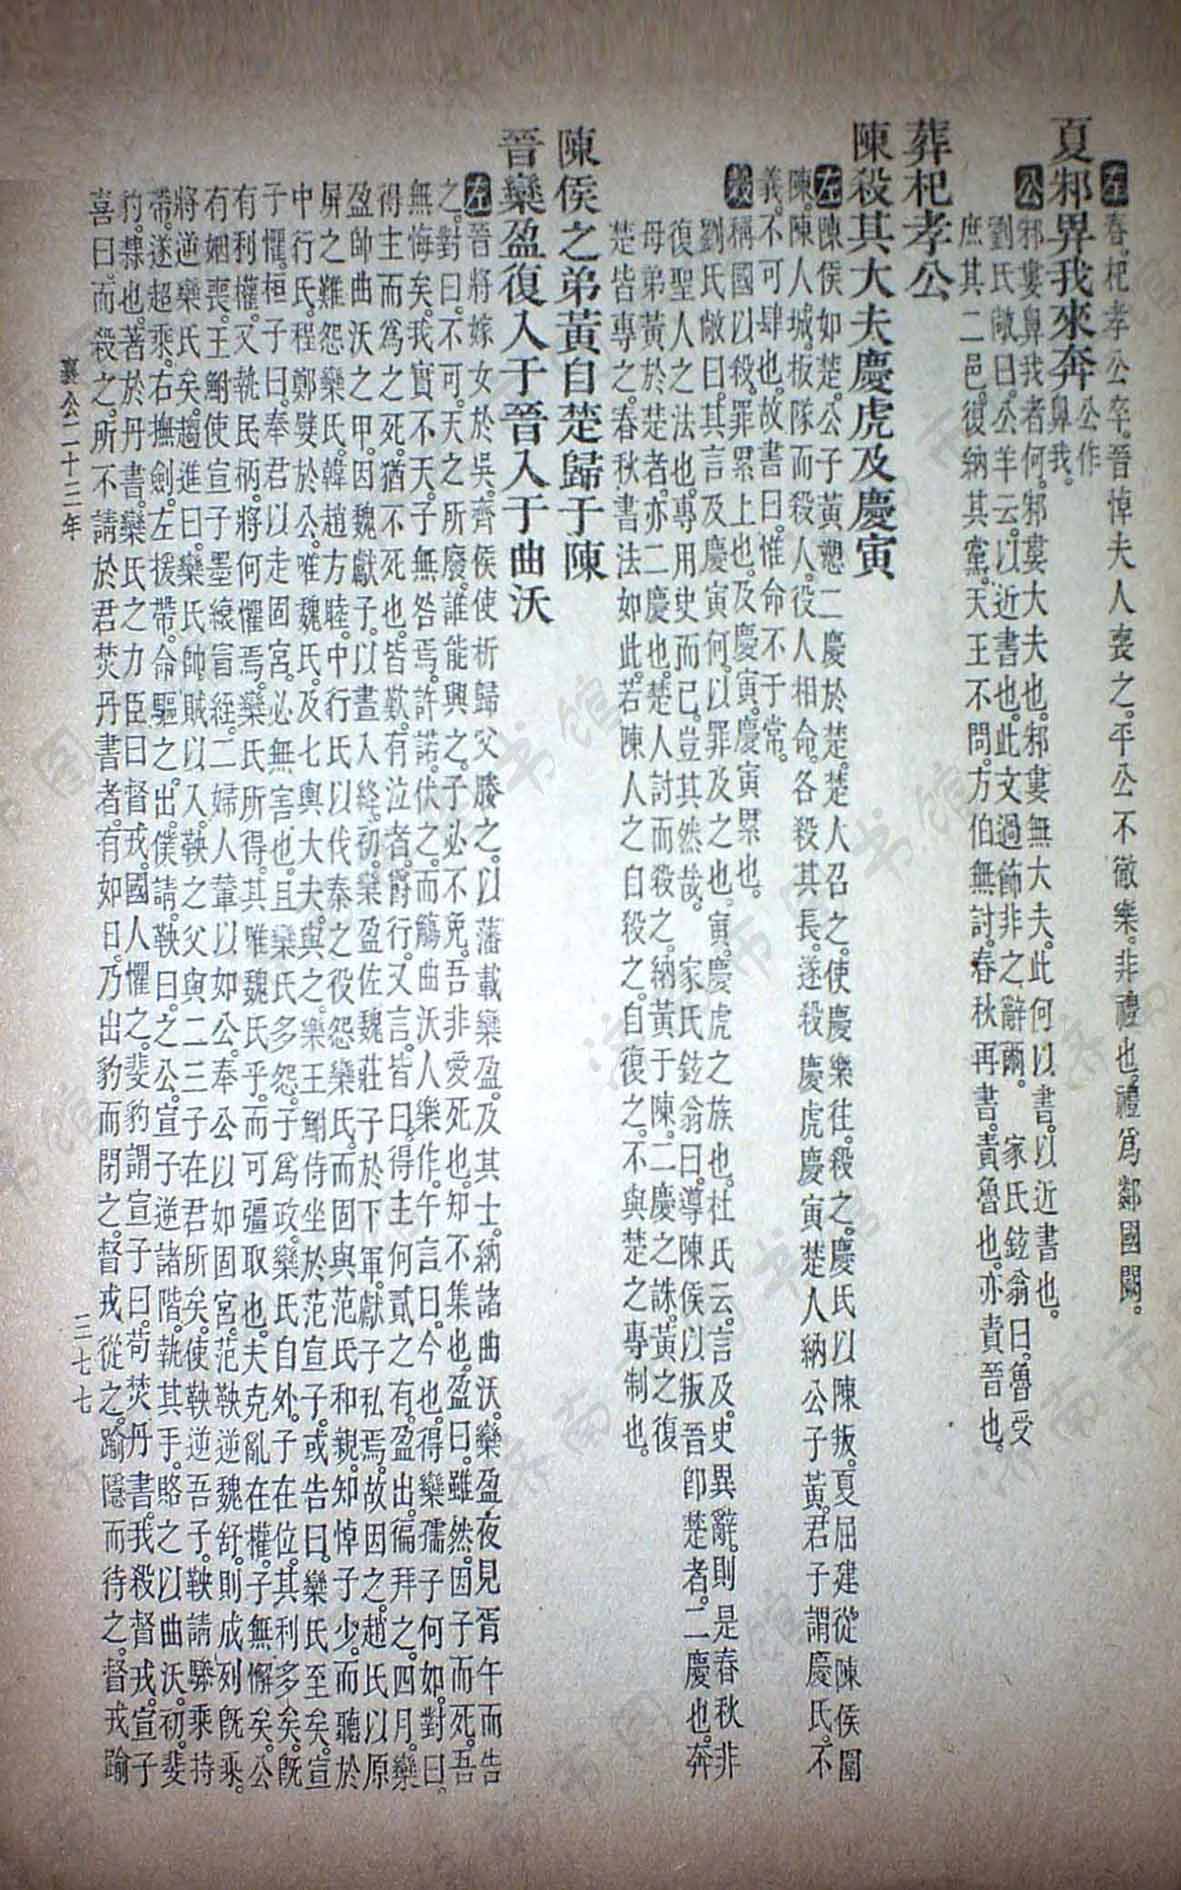 左春。杞孝公卒。晉悼夫人喪之。平公不徹樂。非禮也。禮爲鄰國闕。
夏邾畀我來奔公作鼻我。
公邾婁鼻我者何。邾婁大夫也。邾婁無大夫。此何以書。以近書也。
劉氏敞曰。公羊云。以近書也。此文過飾非之辭爾。 家氏鉉翁曰。魯受
庶其二邑。復納其黨。天王不問。方伯無討。春秋再書。責魯也。亦責晉也。
葬杞孝公
陳殺其大夫慶虎及慶寅
左陳侯如楚。公子黃愬二慶於楚。楚人召之。使慶樂往。殺之。慶氏以陳叛。夏屈建從陳侯圍
陳。陳人城。板隊而殺人。役人相命。各殺其長。遂殺慶虎慶寅。楚人納公子黃。君子謂慶氏。不
義。不可肆也。故書曰。惟命不于常。
穀稱國以殺。罪累上也。及慶寅。慶寅累也。
劉氏敞曰。其言及慶寅何。以罪及之也。寅。慶虎之族也。杜氏云。言及。史異辭。則是春秋非
復聖人之法也。專用史而已。豈其然哉。 家氏鉉翁曰。導陳侯以叛晉卽楚者。二慶也。奔
母弟黃於楚者。亦二慶也。楚人討而殺之。納黃于陳。二慶之誅。黃之復
楚皆專之。春秋書法如此。若陳人之自殺之。自復之。不與楚之專制也。
陳侯之弟黃自楚歸于陳
晉欒盈復入于晉入于曲沃
左晉將嫁女於吳。齊侯使析歸父媵之。以藩載欒盈。及其士。納諸曲沃。欒盈夜見胥午而告
之。對曰。不可。天之所廢。誰能興之。子必不免。吾非愛死也。知不集也。盈曰。雖然。因子而死。吾
無悔矣。我實不天。子無咎焉。許諾。伏之。而觴曲沃人。樂作。午言曰。今也。得欒孺子何如。對曰。
得主而爲之死。猶不死也。皆歎。有泣者。爵行。又言。皆曰。得主何貳之有。盈出。徧拜之。四月。欒
盈帥曲沃之甲。因魏獻子。以晝入絳。初。欒盈佐魏莊子於下軍。獻子私焉。故因之。趙氏以原
屏之難怨欒氏。韓趙方睦。中行氏以伐秦之役怨欒氏。而固與范氏和親。知悼子少。而聽於
中行氏。程鄭嬖於公。唯魏氏。及七輿大夫與之。樂王鮒侍坐於范宣子。或告曰。欒氏至矣。宣
子懼。桓子曰。奉君以走固宮。必無害也。且欒氏多怨。子爲政。欒氏自外。子在位。其利多矣。旣
有利權。又執民柄。將何懼焉。欒氏所得。其唯魏氏乎。而可彊取也。夫克亂在權。子無懈矣。公
有姻喪。王鮒使宣子墨縗冒絰。二婦人輦以如公。奉公以如固宮。范鞅逆魏舒。則成列旣乘。
將逆欒氏矣。趨進曰。欒氏帥賊以入。鞅之父與二三子在君所矣。使鞅逆吾子。鞅請驂乘持
帶。遂超乘。右撫劍。左援帶。命驅之出。僕請。鞅曰。之公。宣子逆諸階。執其手。賂之以曲沃。初。斐
豹。隸也。著於丹書。欒氏之力臣曰督戎。國人懼之。斐豹謂宣子曰。苟焚丹書。我殺督戎。宣子
喜曰。而殺之。所不請於君焚丹書者。有如日。乃出豹而閉之。督戎從之。踰隱而待之。督戎踰
襄公二十三年
三七七